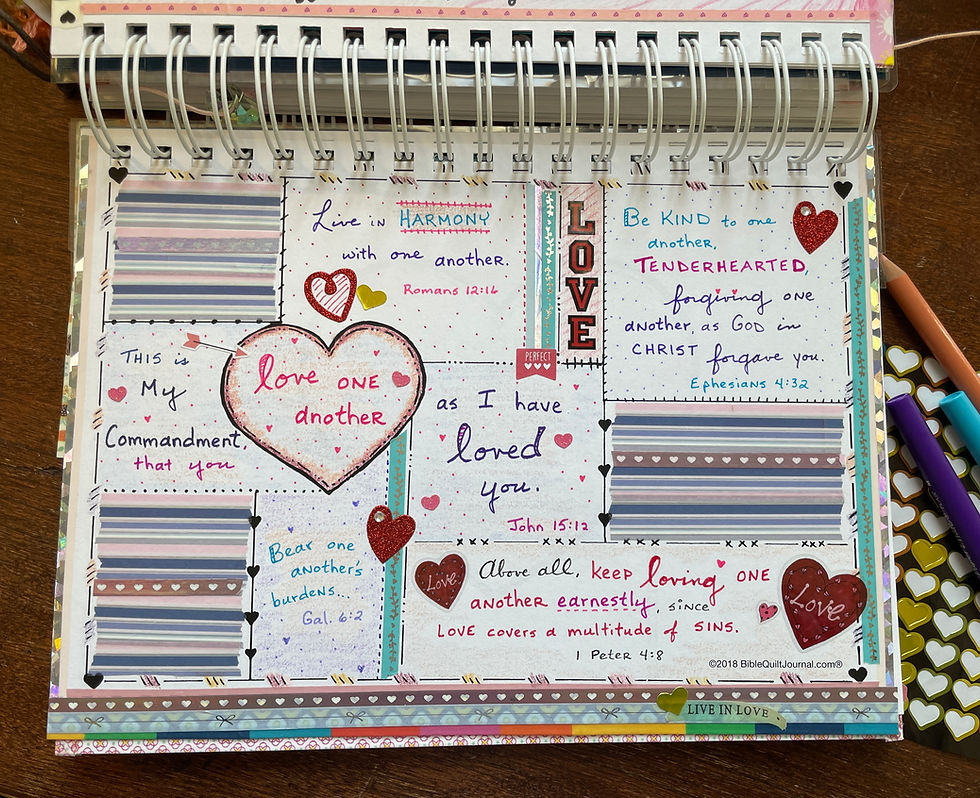 Live in HARMONY
with one another.
Romans 12:16
LOVE
PERFECT
Be KIND to one
another,
TENDERHEARTED,
forgiving one
another, as GOD in
CHRIST forgave you.
Ephesians 4:32
THIS is
My
Commandment,
that you
love ONE
another
as I have
loved
you.
John 15:12
Bear one
another's
burdens...
Gal. 6:2
Love
Above all, keep loving ONE
another earnestly, since
LOVE covers a multitude of SINS.
1 Peter 4:8
Love
©2018 BibleQuiltJournal.com®
LIVE IN LOVE